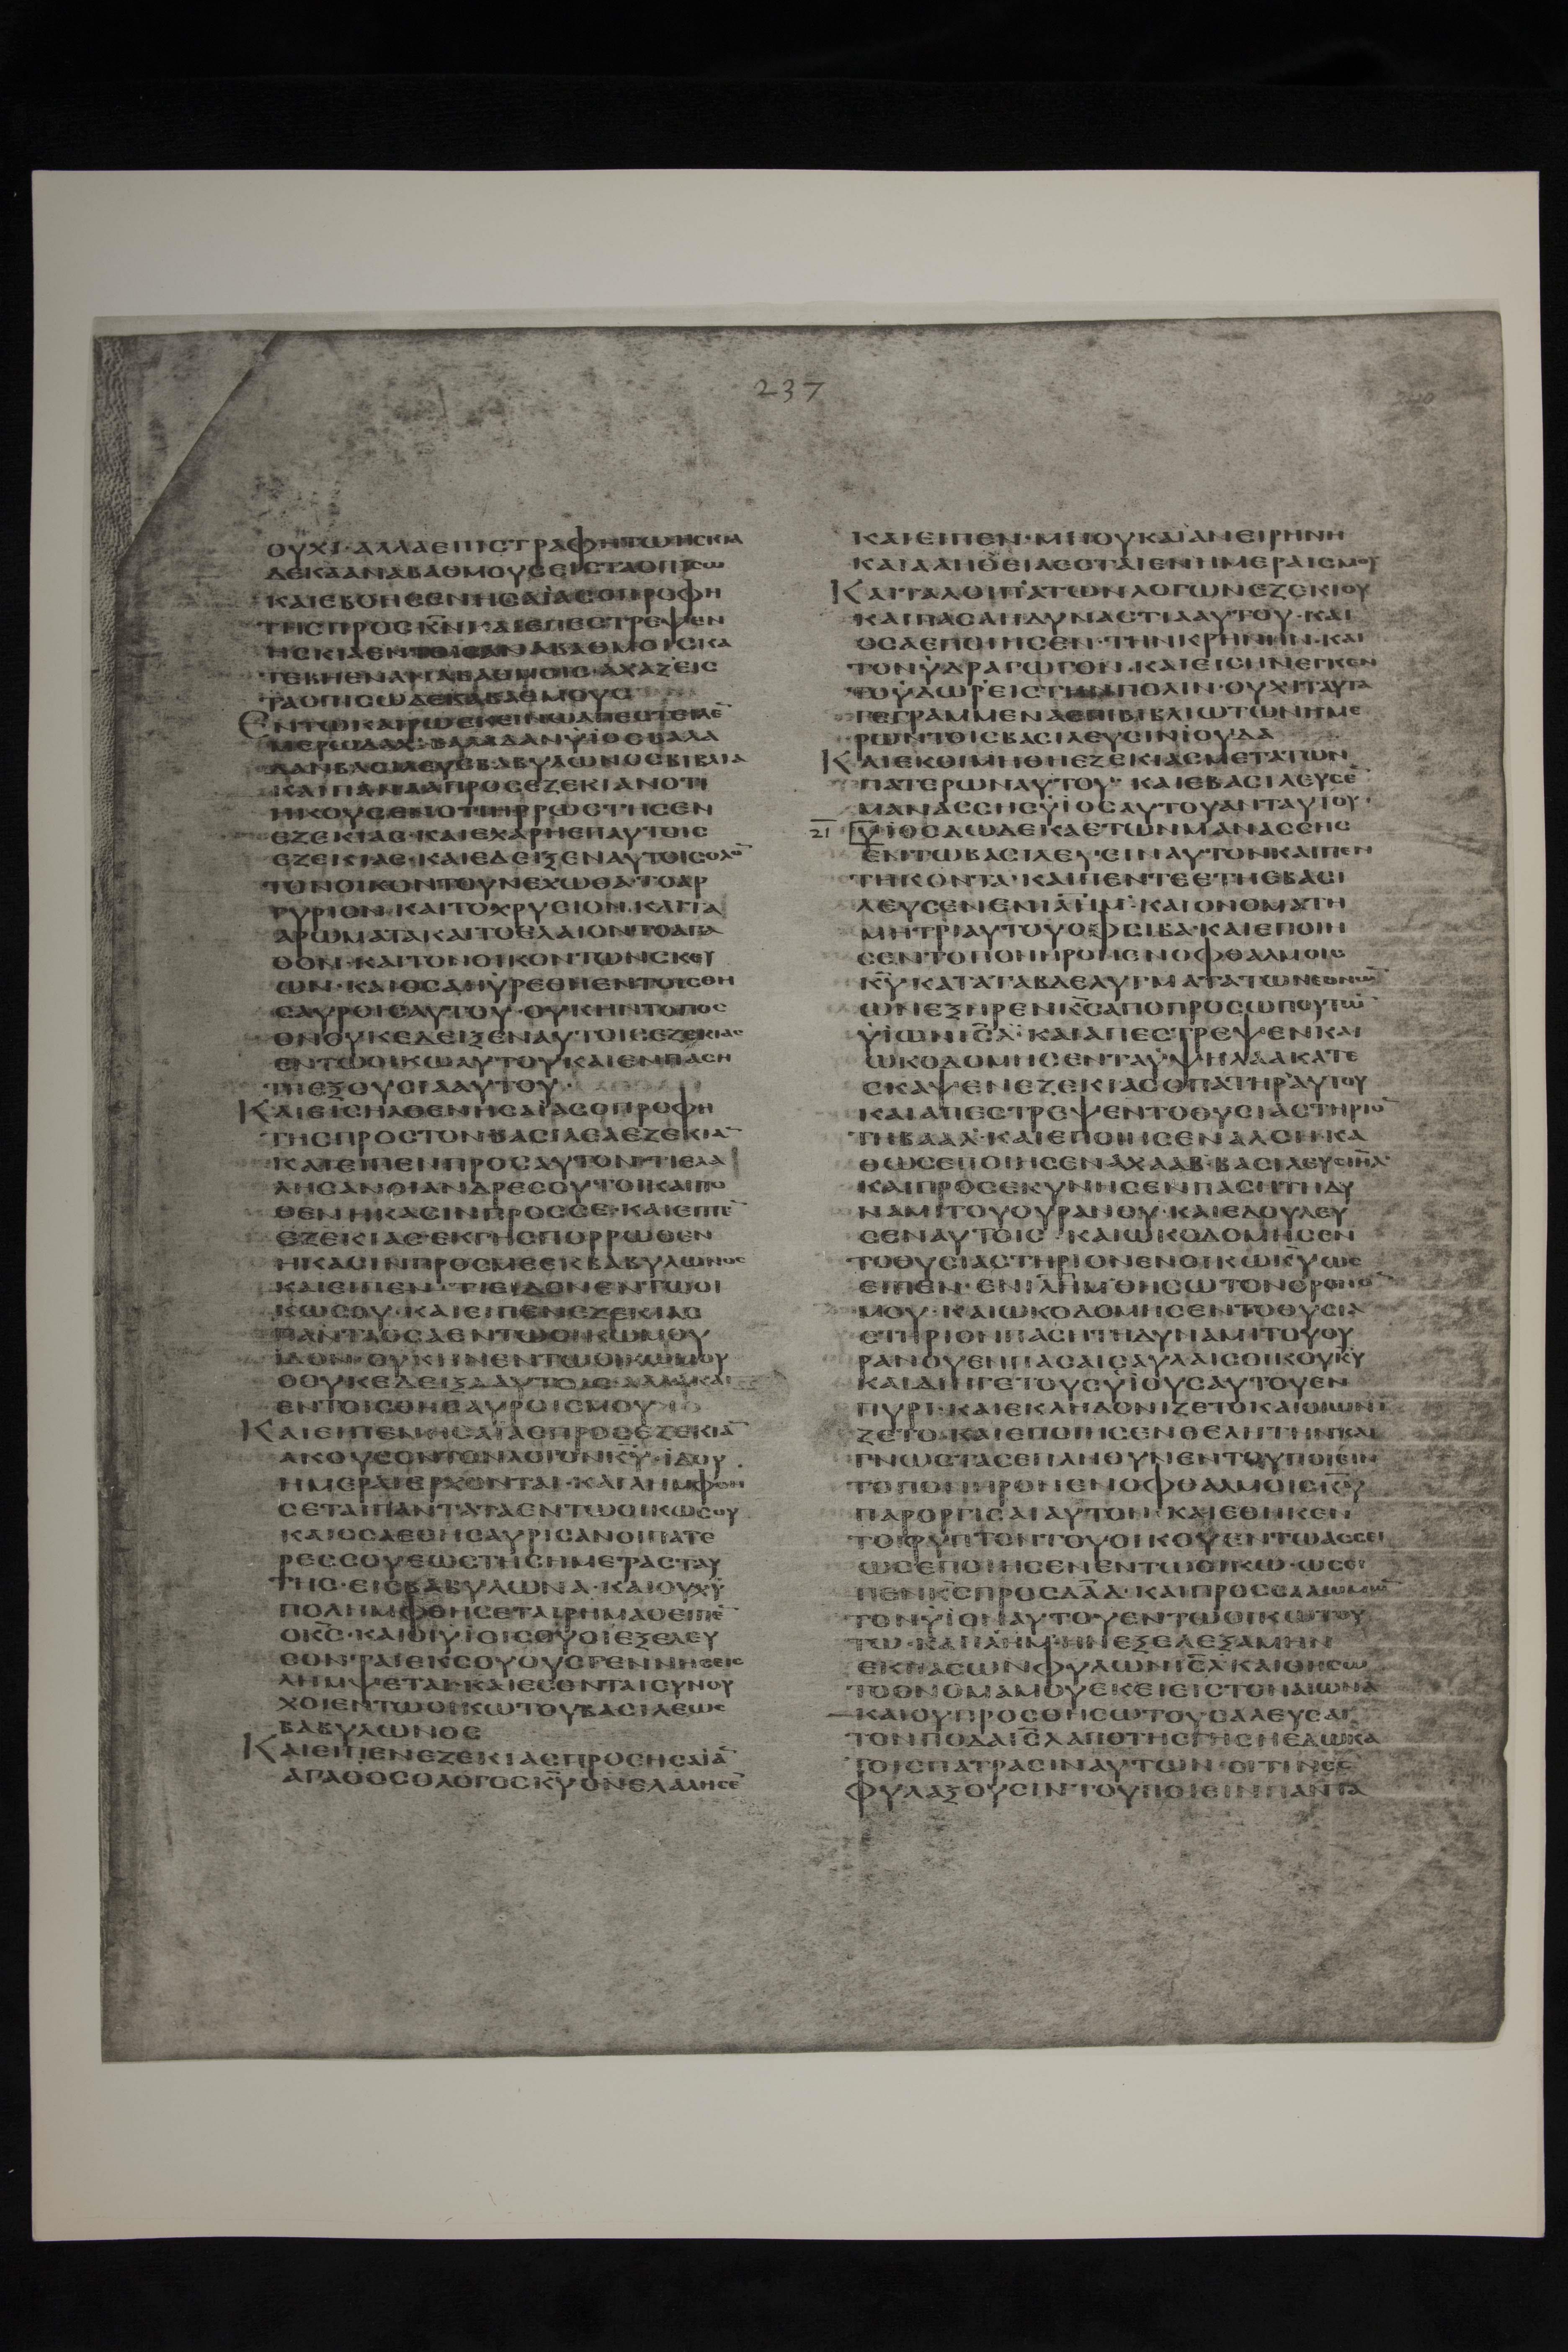 237
ΟΥΧΙ·ΑΛΛΑΕΠΙΣΤΡΑΦΗΤΩΗΣΚΙΑ
ΔΕΚΑΑΝΑΒΑΘΜΟΥΣΕΙΣΤΑΟΠΙΣΩ
ΚΑΙΕΒΟΗΣΕΝΗΣΑΪΑΣΟΠΡΟΦΗ
ΤΗΣΠΡΟΣΚ̅Ν̅ΚΑΙΕΠΕΣΤΡΕΨΕΝ
ΗΣΚΙΑΕΝΤΟΙΣΑΝΑΒΑΘΜΟΙΣΚΑ
ΤΕΒΗΕΝΑΝΑΒΑΘΜΟΙΣΑΧΑΖΕΙΣ
ΤΑΟΠΙΣΩΔΕΚΑΒΑΘΜΟΥΣ
ΕΝΤΩΚΑΙΡΩΕΚΕΙΝΩΑΠΕΣΤΕΙΛΕ̅
ΜΕΡΩΔΑΧ·ΒΑΛΑΔΑΝΫΪΟΣΒΑΛΑ
ΔΑΝΒΑΣΙΛΕΥΣΒΑΒΥΛΩΝΟΣΒΙΒΛΙΑ
ΚΑΙΜΑΝΑΑΠΡΟΣΕΖΕΚΙΑΝΟΤΙ
ΗΚΟΥΣΕΝΟΤΙΗΡΡΩΣΤΗΣΕΝ
ΕΖΕΚΙΑΣ·ΚΑΙΕΧΑΡΗΕΠΑΥΤΟΙΣ
ΕΖΕΚΙΑΣ·ΚΑΙΕΔΕΙΞΕΝΑΥΤΟΙΣΟΛΟ̅
ΤΟΝΟΙΚΟΝΤΟΥΝΕΧΩΘΑΤΟΑΡ
ΓΥΡΙΟΝ·ΚΑΙΤΟΧΡΥΣΙΟΝ·ΚΑΙΤΑ
ΑΡΩΜΑΤΑΚΑΙΤΟΕΛΑΙΟΝΤΟΑΓΑ
ΘΟΝ·ΚΑΙΤΟΝΟΙΚΟΝΤΩΝΣΚΕΥ
ΩΝ·ΚΑΙΟΣΑΗΫΡΕΘΗΕΝΤΟΙΣΘΗ
ΣΑΥΡΟΙΣΑΥΤΟΥ·ΟΥΚΗΝΤΟΠΟΣ
ΟΝΟΥΚΕΔΕΙΞΕΝΑΥΤΟΙΣΕΖΕΚΙΑΣ
ΕΝΤΩΟΙΚΩΑΥΤΟΥΚΑΙΕΝΠΑΣΗ
ΤΗΕΞΟΥΣΙΑΑΥΤΟΥ·
ΚΑΙΕΙΣΗΛΘΕΝΗΣΑΪΑΣΟΠΡΟΦΗ
ΤΗΣΠΡΟΣΤΟΝΒΑΣΙΛΕΑΕΖΕΚΙΑ̅
ΚΑΙΕΙΠΕΝΠΡΟΣΑΥΤΟΝΤΙΕΛΑ
ΛΗΣΑΝΟΙΑΝΔΡΕΣΟΥΤΟΙΚΑΙΠΟ
ΘΕΝΗΚΑΣΙΝΠΡΟΣΣΕ·ΚΑΙΕΙΠΕ̅
ΕΖΕΚΙΑΣ·ΕΚΓΗΣΠΟΡΡΩΘΕΝ
ΗΚΑΣΙΝΠΡΟΣΜΕΕΚΒΑΒΥΛΩΝΟΣ
ΚΑΙΕΙΠΕΝ·ΤΙΕΙΔΟΝΕΝΤΩΟΙ
ΚΩΣΟΥ·ΚΑΙΕΙΠΕΝΕΖΕΚΙΑΣ
ΠΑΝΤΑΟΣΑΕΝΤΩΟΙΚΩΜΟΥ
ΪΔΟΝ·ΟΥΚΗΝΕΝΤΩΟΙΚΩΜΟΥ
ΟΟΥΚΕΔΕΙΞΑΑΥΤΟΙΣ·ΑΛΛΑΚΑΙ
ΕΝΤΟΙΣΘΗΣΑΥΡΟΙΣΜΟΥ
ΚΑΙΕΙΠΕΝΗΣΑΪΑΣΠΡΟΣΕΖΕΚΙΑ̅
ΑΚΟΥΣΟΝΤΟΝΛΟΓΟΝΚ̅Υ̅·ΪΔΟΥ
ΗΜΕΡΑΙΕΡΧΟΝΤΑΙ·ΚΑΙΛΗΜΦΘΗ
ΣΕΤΑΙΠΑΝΤΑΤΑΕΝΤΩΟΙΚΩΣΟΥ
ΚΑΙΟΣΑΕΘΗΣΑΥΡΙΣΑΝΟΙΠΑΤΕ
ΡΕΣΣΟΥΕΩΣΤΗΣΗΜΕΡΑΣΤΑΥ
ΤΗΣ·ΕΙΣΒΑΒΥΛΩΝΑ·ΚΑΙΟΥΧΫ
ΠΟΛΗΜΦΘΗΣΕΤΑΙΡΗΜΑΟΕΙΠΕ̅
ΟΚ̅Σ̅·ΚΑΙΟΙΫΪΟΙΣΟΥΟΙΕΞΕΛΕΥ
ΣΟΝΤΑΙΕΚΣΟΥΟΥΣΓΕΝΝΗΣΕΙΣ
ΛΗΜΨΕΤΑΙ·ΚΑΙΕΣΟΝΤΑΙΕΥΝΟΥ
ΧΟΙΕΝΤΩΟΙΚΩΤΟΥΒΑΣΙΛΕΩΣ
ΒΑΒΥΛΩΝΟΣ
ΚΑΙΕΙΠΕΝΕΖΕΚΙΑΣΠΡΟΣΗΣΑΪΑ̅
ΑΓΑΘΟΣΟΛΟΓΟΣΚ̅Υ̅ΟΝΕΛΑΛΗΣΕ̅
ΚΑΙΕΙΠΕΝ·ΜΗΟΥΚΑΙΑΝΕΙΡΗΝΗ
ΚΑΙΑΛΗΘΕΙΑΕΣΤΑΙΕΝΗΜΕΡΑΙΣΜΟΥ
ΚΑΙΤΑΛΟΙΠΑΤΩΝΛΟΓΩΝΕΖΕΚΙΟΥ
ΚΑΙΠΑΣΑΗΔΥΝΑΣΤΙΑΑΥΤΟΥ·ΚΑΙ
ΟΣΑΕΠΟΙΗΣΕΝ·ΤΗΝΚΡΗΝΗΝ·ΚΑΙ
ΤΟΝΫΔΡΑΓΩΓΟΝ·ΚΑΙΕΙΣΗΝΕΓΚΕΝ
ΤΟΫΔΩΡΕΙΣΤΗΝΠΟΛΙΝ·ΟΥΧΙΤΑΥΤΑ
ΓΕΓΡΑΜΜΕΝΑΕΠΙΒΙΒΛΙΩΤΩΝΗΜΕ
ΡΩΝΤΟΙΣΒΑΣΙΛΕΥΣΙΝΪΟΥΔΑ
ΚΑΙΕΚΟΙΜΗΘΗΕΖΕΚΙΑΣΜΕΤΑΤΩΝ
ΠΑΤΕΡΩΝΑΥΤΟΥ·ΚΑΙΕΒΑΣΙΛΕΥΣΕ̅
ΜΑΝΑΣΣΗΣΫΪΟΣΑΥΤΟΥΑΝΤΑΥΤΟΥ·
21 ΫΙΟΣΔΩΔΕΚΑΕΤΩΝΜΑΝΑΣΣΗΣ
ΕΝΤΩΒΑΣΙΛΕΥΕΙΝΑΥΤΟΝΚΑΙΠΕΝ
ΤΗΚΟΝΤΑ·ΚΑΙΠΕΝΤΕΕΤΗΕΒΑΣΙ
ΛΕΥΣΕΝΕΝΙ̅Λ̅Η̅Μ̅·ΚΑΙΟΝΟΜΑΤΗ
ΜΗΤΡΙΑΥΤΟΥΟΦΣΙΒΑ·ΚΑΙΕΠΟΙΗ
ΣΕΝΤΟΠΟΝΗΡΟΝΕΝΟΦΘΑΛΜΟΙΣ
Κ̅Υ̅ΚΑΤΑΤΑΒΔΕΛΥΓΜΑΤΑΤΩΝΕΘΝΩ̅
ΩΝΕΞΗΡΕΝΚ̅Σ̅ΑΠΟΠΡΟΣΩΠΟΥΤΩ̅
ΫΪΩΝΙ̅Σ̅Λ̅·ΚΑΙΑΠΕΣΤΡΕΨΕΝΚΑΙ
ΩΚΟΔΟΜΗΣΕΝΤΑΫΨΗΛΑΑΚΑΤΕ
ΣΚΑΨΕΝΕΖΕΚΙΑΣΟΠΑΤΗΡΑΥΤΟΥ
ΚΑΙΑΠΕΣΤΡΕΨΕΝΤΟΘΥΣΙΑΣΤΗΡΙΟ̅
ΤΗΒΑΑΛ·ΚΑΙΕΠΟΙΗΣΕΝΑΛΣΗΚΑ
ΘΩΣΕΠΟΙΗΣΕΝΑΧΑΑΒ·ΒΑΣΙΛΕΥΣΙ̅Η̅Λ̅
ΚΑΙΠΡΟΣΕΚΥΝΗΣΕΝΠΑΣΗΤΗΔΥ
ΝΑΜΙΤΟΥΟΥΡΑΝΟΥ·ΚΑΙΕΔΟΥΛΕΥ
ΣΕΝΑΥΤΟΙΣ·ΚΑΙΩΚΟΔΟΜΗΣΕΝ
ΤΟΘΥΣΙΑΣΤΗΡΙΟΝΕΝΟΙΚΩΚ̅Υ̅ΩΣ
ΕΙΠΕΝ·ΕΝΙ̅Λ̅Η̅Μ̅ΘΗΣΩΤΟΝΘΡΟΝΟ̅
ΜΟΥ·ΚΑΙΩΚΟΔΟΜΗΣΕΝΤΟΘΥΣΙΑ
ΣΤΗΡΙΟΝΠΑΣΗΤΗΔΥΝΑΜΙΤΟΥΟΥ
ΡΑΝΟΥΕΝΠΑΣΑΙΣΑΥΛΑΙΣΟΙΚΟΥΚ̅Υ̅
ΚΑΙΔΙΗΓΕΤΟΥΣΫΪΟΥΣΑΥΤΟΥΕΝ
ΠΥΡΙ·ΚΑΙΕΚΛΗΔΟΝΙΖΕΤΟΚΑΙΟΙΩΝΙ
ΖΕΤΟ·ΚΑΙΕΠΟΙΗΣΕΝΘΕΛΗΤΗΝΚΑΙ
ΓΝΩΣΤΑΣΕΠΛΗΘΥΝΕΝΤΟΥΠΟΙΕΙΝ
ΤΟΠΟΝΗΡΟΝΕΝΟΦΘΑΛΜΟΙΣΚ̅Υ̅
ΠΑΡΟΡΓΙΣΑΙΑΥΤΟΝ·ΚΑΙΕΘΗΚΕΝ
ΤΟΓΛΥΠΤΟΝΤΟΥΟΙΚΟΥΕΝΤΩΑΣΣΕΙ
ΩΣΕΠΟΙΗΣΕΝΕΝΤΩΟΙΚΩ·ΩΣΕΙ
ΠΕΝΚ̅Σ̅ΠΡΟΣΔ̅Α̅Δ̅·ΚΑΙΠΡΟΣΣΑΛΩΜΩ̅
ΤΟΝΫΪΟΝΑΥΤΟΥΕΝΤΩΟΙΚΩΤΟΥ
ΤΩ·ΚΑΙΙ̅Λ̅Η̅Μ̅·ΗΝΕΞΕΛΕΞΑΜΗΝ
ΕΚΠΑΣΩΝΦΥΛΩΝΙ̅Σ̅Λ̅ΚΑΙΘΗΣΩ
ΤΟΟΝΟΜΑΜΟΥΕΚΕΙΕΙΣΤΟΝΑΙΩΝΑ
ΚΑΙΟΥΠΡΟΣΘΗΣΩΤΟΥΣΑΛΕΥΣΑΙ
ΤΟΝΠΟΔΑΙ̅Σ̅Λ̅ΑΠΟΤΗΣΓΗΣΗΣΕΔΩΚΑ
ΤΟΙΣΠΑΤΡΑΣΙΝΑΥΤΩΝ·ΟΙΤΙΝΕΣ
ΦΥΛΑΞΟΥΣΙΝΤΟΥΠΟΙΕΙΝΠΑΝΤΑ